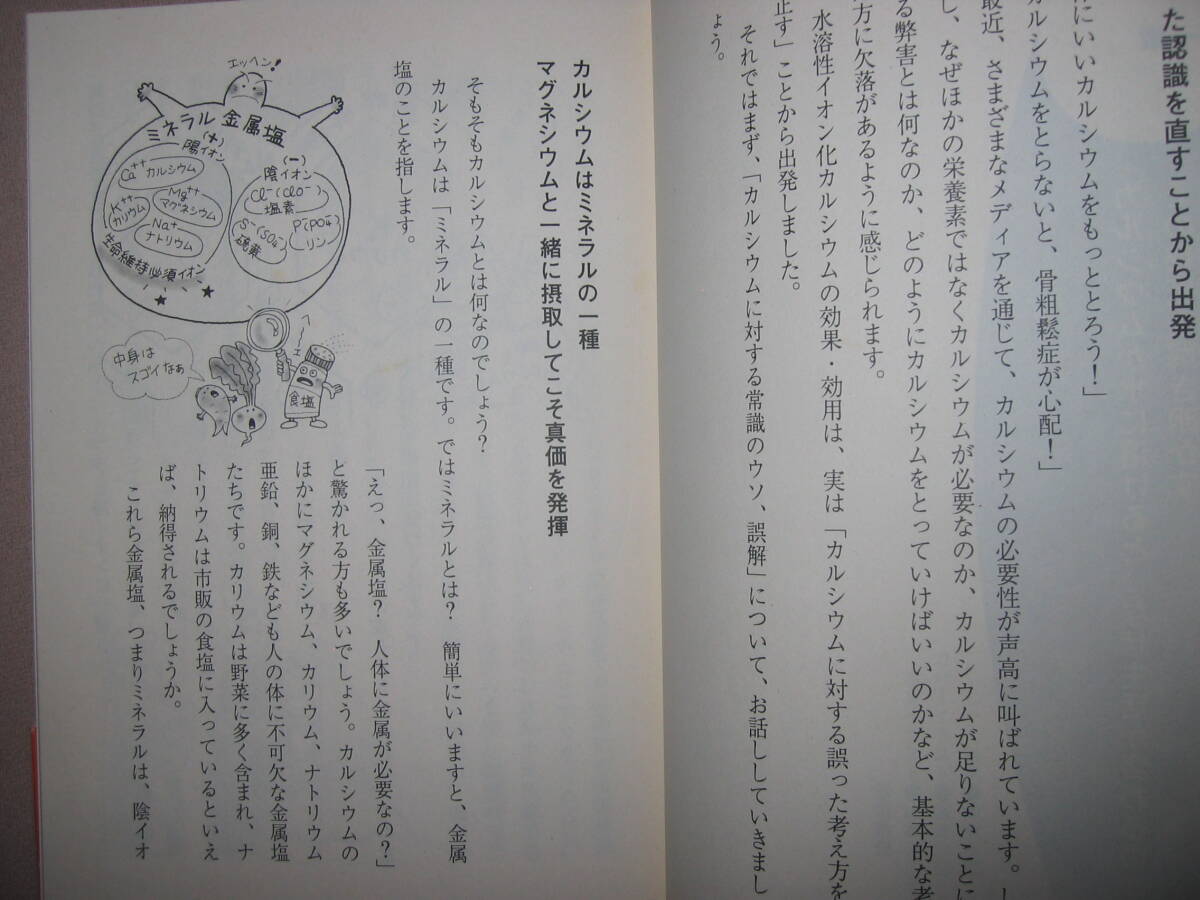 た認識を直すことから出発
にいいカルシウムをもっととろう！」
カルシウムをとらないと、骨粗鬆症が心配！」
最近、さまざまなメディアを通じて、カルシウムの必要性が声高に叫ばれています。
し、なぜほかの栄養素ではなくカルシウムが必要なのか、カルシウムが足りないことに
る弊害とは何なのか、どのようにカルシウムをとっていけばいいのかなど、基本的な考
方に欠落があるように感じられます。
水溶性イオン化カルシウムの効果・効用は、実は「カルシウムに対する誤った考え方を
止す」ことから出発しました。
それではまず、「カルシウムに対する常識のウソ、誤解」について、お話ししていきまし
ょう。
カルシウムはミネラルの一種
マグネシウムと一緒に摂取してこそ真価を発揮
そもそもカルシウムとは何なのでしょう？
カルシウムは「ミネラル」の一種です。ではミネラルとは？　簡単にいいますと、金属
塩のことを指します。
「えっ、金属塩？　人体に金属が必要なの？」
と驚かれる方も多いでしょう。カルシウムの
ほかにマグネシウム、カリウム、ナトリウム
亜鉛、銅、鉄なども人の体に不可欠な金属塩
たちです。カリウムは野菜に多く含まれ、ナ
トリウムは市販の食塩に入っているといえ
ば、納得されるでしょうか。
これら金属塩、つまりミネラルは、陰イオ
エッヘン！
ミネラル 金属塩
(+)
陽イオン
Ca++ カルシウム
Mg++
マグネシウム
K++
カリウム
Na+
ナトリウム
生命維持必須イオン
(−)
陰イオン
Cl−(ClO−)
塩素
S−(SO4)
硫黄
P−(PO4−)
リン
中身は
スゴイなぁ
エ
食塩